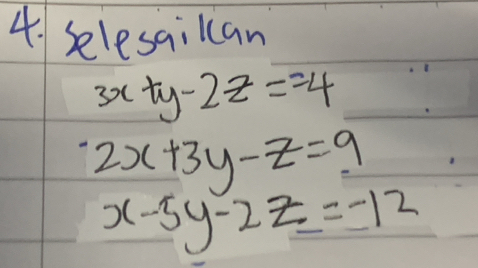 4. Selesaikan
3x+y-2z=-4
-2x+3y-z=9
x-5y-2z=-12